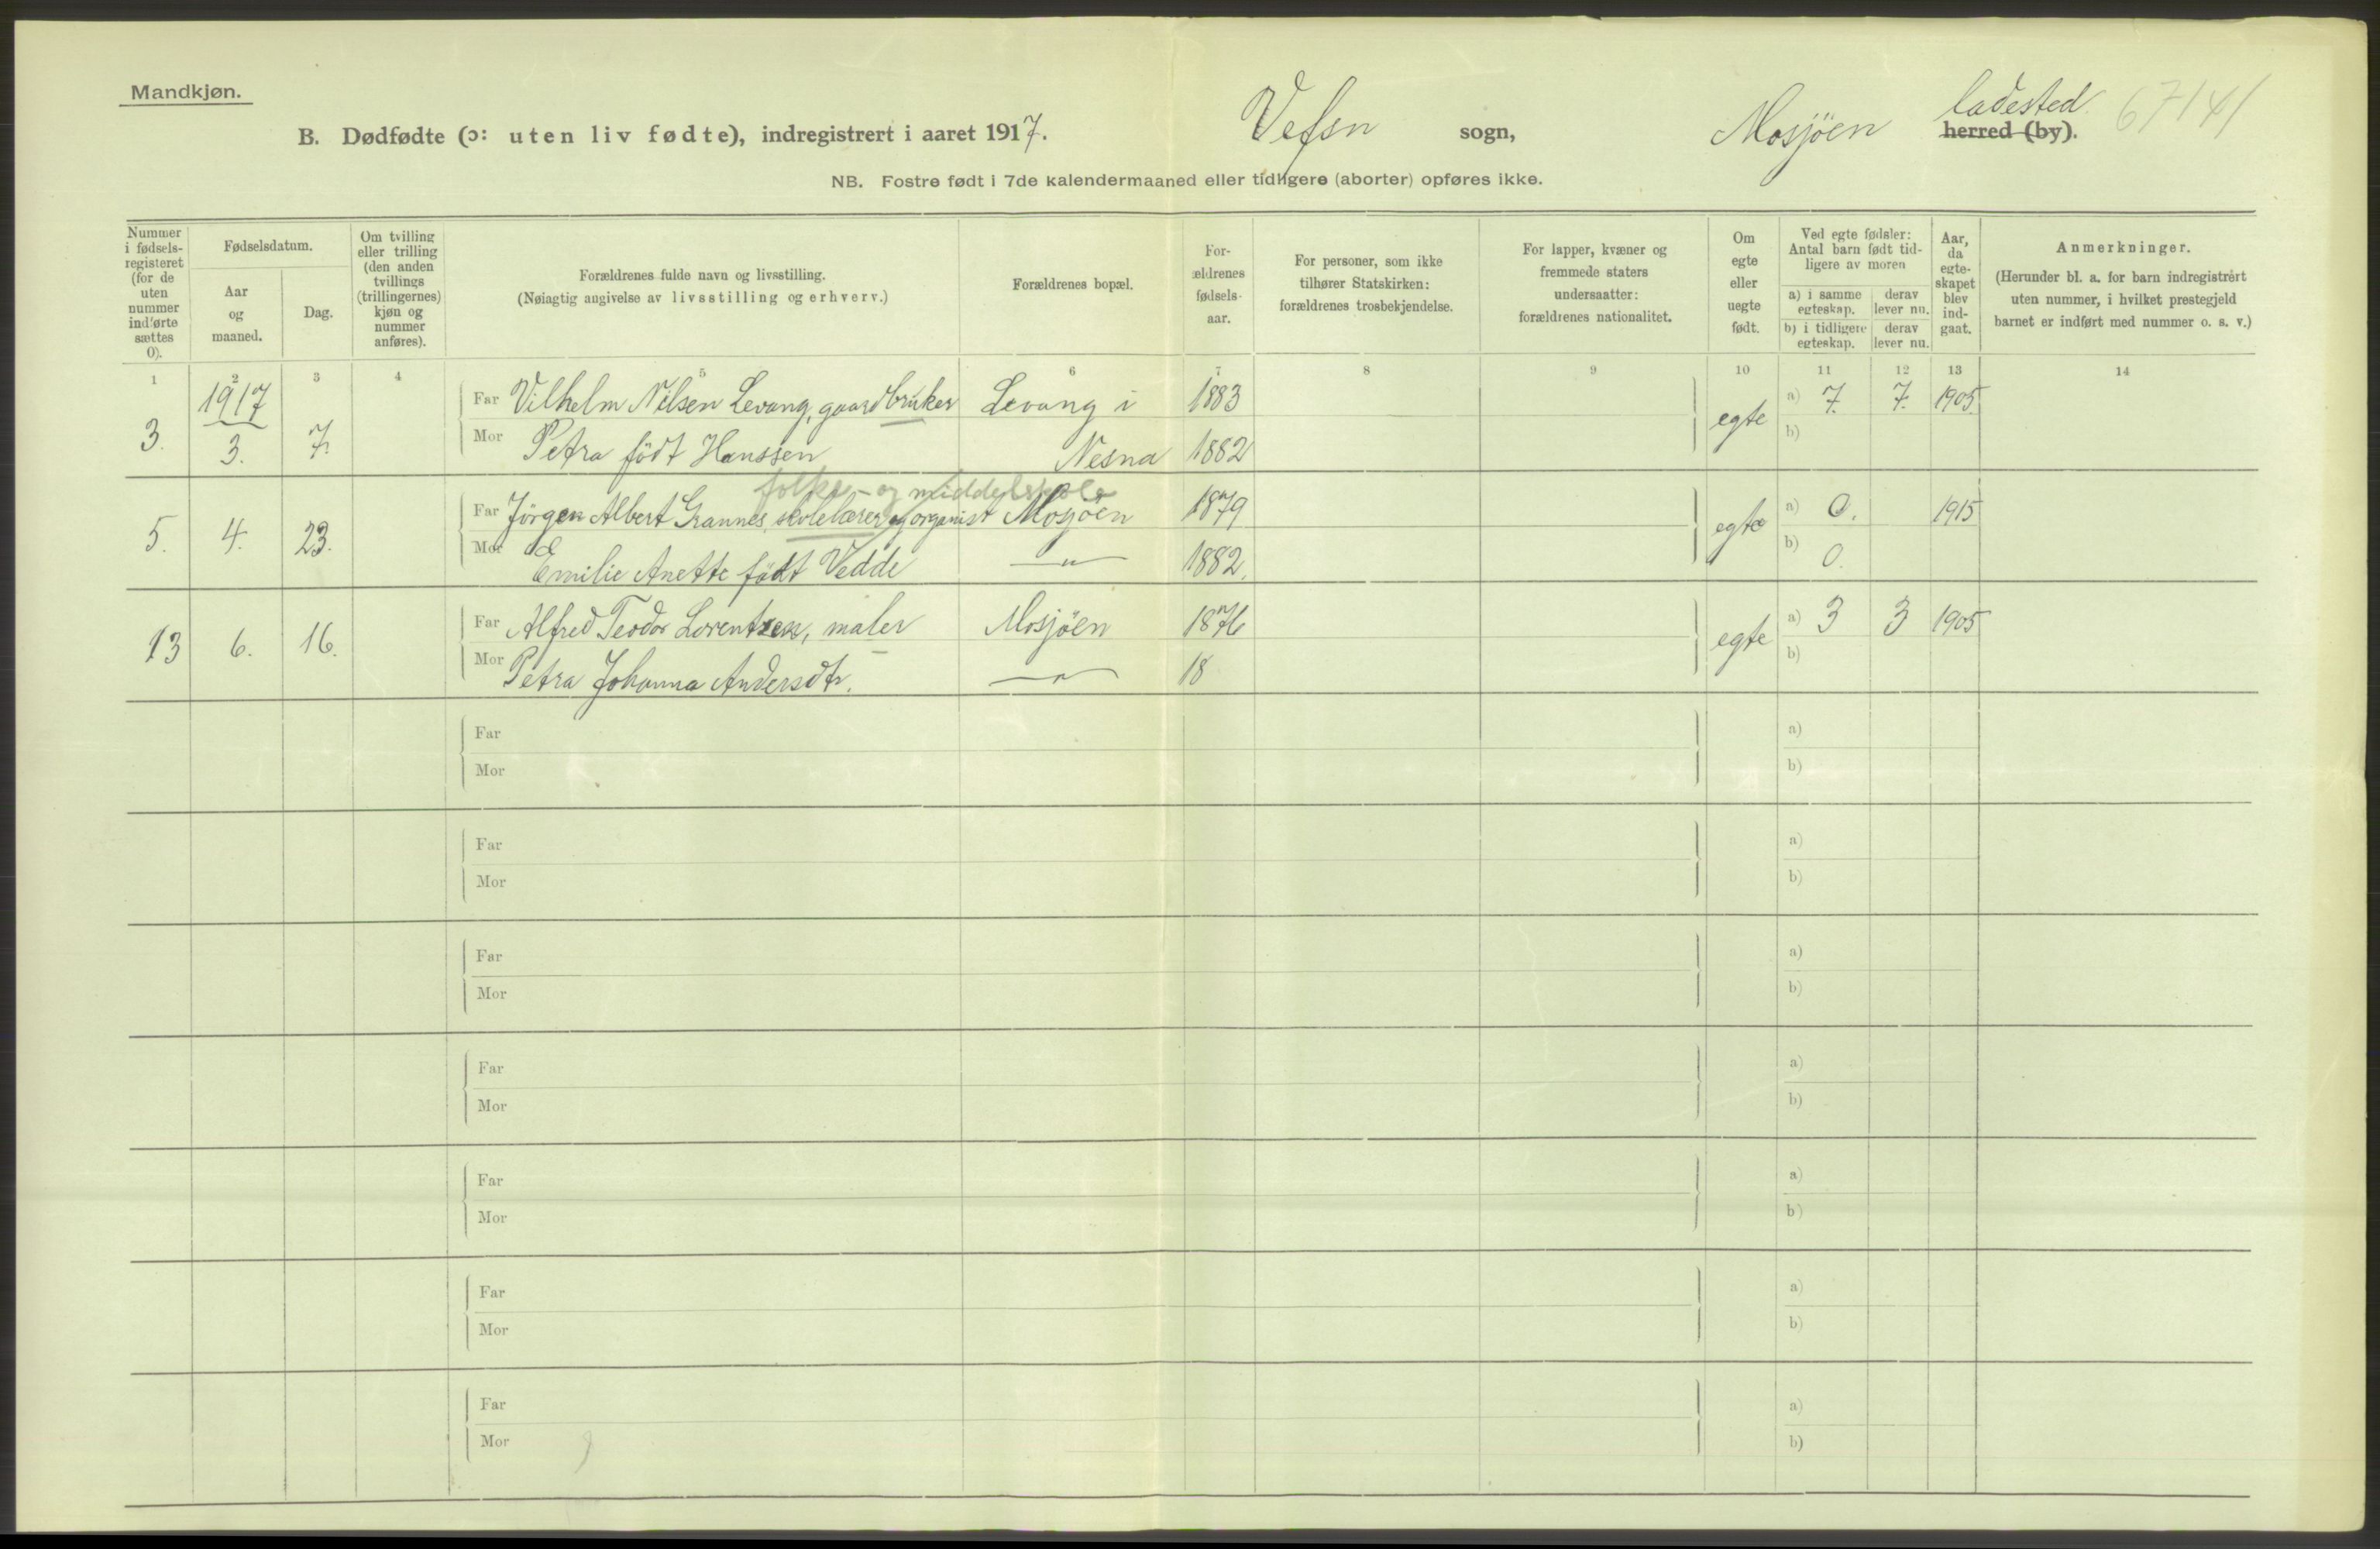 Mandkjøn.
B. Dødfødte (ɔ: uten liv fødte), indregistrert i aaret 1917. Vefsn sogn, Mosjöen ladested herred (by). 67141
NB. Fostre født i 7de kalendermaaned eller tidligere (aborter) opføres ikke.
Nummer i fødsels-registeret (for de uten nummer indførte sættes 0).
Fødselsdatum.
Aar og maaned.
Dag.
Om tvilling eller trilling (den anden tvillings (trillingernes) kjøn og nummer anføres).
Forældrenes fulde navn og livsstilling.
(Nøiagtig angivelse av livsstilling og erhverv.)
Forældrenes bopæl.
For-ældrenes fødsels-aar.
For personer, som ikke tilhører Statskirken: forældrenes trosbekjendelse.
For lapper, kvæner og fremmede staters undersaatter: forældrenes nationalitet.
Om egte eller uegte født.
Ved egte fødsler: Antal barn født tid-ligere av moren
a) i samme egteskap. derav lever nu.
b) i tidligere egteskap. derav lever nu.
Aar, da egte-skapet blev ind-gaat.
Anmerkninger.
(Herunder bl. a. for barn indregistrert uten nummer, i hvilket prestegjeld barnet er indført med nummer o. s. v.)
1 2 3 4 5 6 7 8 9 10 11 12 13 14
1917
3. 3. 7. Far Vilhelm Nilsen Levang, gaardbruker Levang i 1883 egte a) 7. 7. 1905
Mor Petra födt Hanssen Nesna 1882 b)
folke- og middelskole
5. 4. 23. Far Jörgen Albert Grannes, skolelærer og organist Mosjöen 1879 egte a) 0. 1915
Mor Emilie Anette födt Vedde — " — 1882. b) 0.
13 6. 16. Far Alfred Teodor Lorentzen, maler Mosjöen 1876 egte a) 3 3 1905
Mor Petra Johanna Andersdtr. — " — 18 b)
Far a)
Mor b)
Far a)
Mor b)
Far a)
Mor b)
Far a)
Mor b)
Far a)
Mor b)
Far a)
Mor b)
Far a)
Mor b)